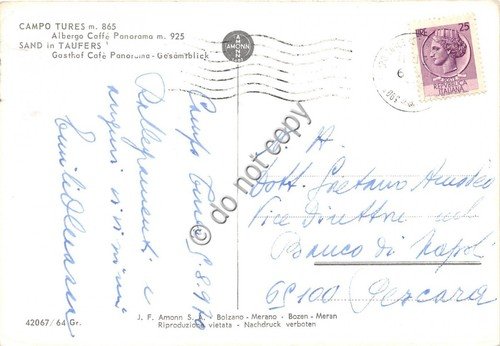 CAMPO TURES m. 865
Albergo Caffé Panorama m. 925
SAND in TAUFERS
Gasthof Café Panorama - Gesamtblick
AMONN
LIRE 25
REPUBBLICA
ITALIANA
Campo Tures 5.8.970
Rallegramenti e
auguri vivissimi
do not copy
Dott. Gaetano Amodeo
Vice Direttore del
Banco di Napoli
65100 Pescara
42067/64 Gr.
J. F. Amonn S. A. - Bolzano - Merano - Bozen - Meran
Riproduzione vietata - Nachdruck verboten